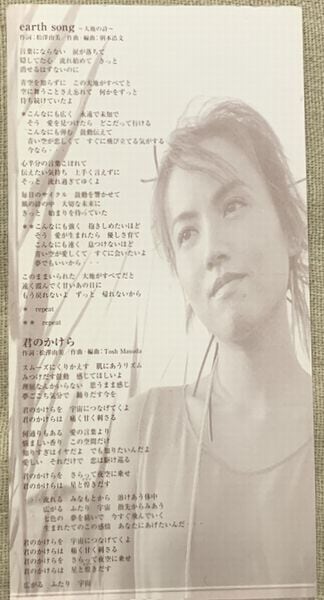 earth song ～大地の詩～
作詞：松澤由美／作曲・編曲：朝本浩文
言葉にならない 涙が落ちて
隠してた心 流れ始めて きっと
消せるはずないのに
青空を知らずに この大地がすべてと
空に舞うことさえ忘れて 何かをずっと
待ち続けていたよ
＊こんなにも広く 永遠で未知で
そう 愛を見つけたら どこだって行ける
こんなにも弾む 鼓動伝えて
青い空が恋しくて すぐに飛び立てる気がする
今なら・・
心半分の言葉こぼれて
伝えたい気持ち 上手く言えずに
そっと 流れ過ぎてゆくよ
毎日のサイクル 鼓動を響かせて
風の詩の中 大切な未来に
きっと 始まりを待っていた
＊＊こんなにも強く 抱きしめたいほど
そう 愛が生まれたら 優しさ育て
こんなにも遠く 息つけないほど
青い空が愛しくて すぐに会いたいよ
夢でもいいから・・・
このままいられた 大地がすべてだと
遠く霞んでく甘いあの日に
もう戻れないよ ずっと 帰れないから
＊ repeat
＊＊ repeat
君のかけら
作詞：松澤由美／作曲・編曲：Tosh Masuda
スムーズにくりかえす 肌にあうリズム
みつけだす鼓動 感じてほしいよ
理屈なんかいらない 思うまま感じ
夢ごこち気分で 踊りだす今を
君のかけらを 宇宙につなげてくよ
君のかけらは 痛く甘く刺さる
何通りもある 愛の言葉より
懐ましい香り この空間だけ
知りすぎはイヤだよ でも知りたいんだよ
愛しい それだけで 恋は駆け巡る
君のかけらを さらって夜空に乗せ
君のかけらは 星と煌きだす
流れる みなもとから 溶けあう体中
広がる ふたり 宇宙 指先からみあう
七色の 夢を描いて 今すぐ飛んでいく
生まれたてのこの感情 あなたにあげたいんだ
君のかけらを 宇宙につなげてくよ
君のかけらは 痛く甘く刺さる
君のかけらを さらって夜空に乗せ
君のかけらは 星と煌きだす
広がる ふたり 宇宙